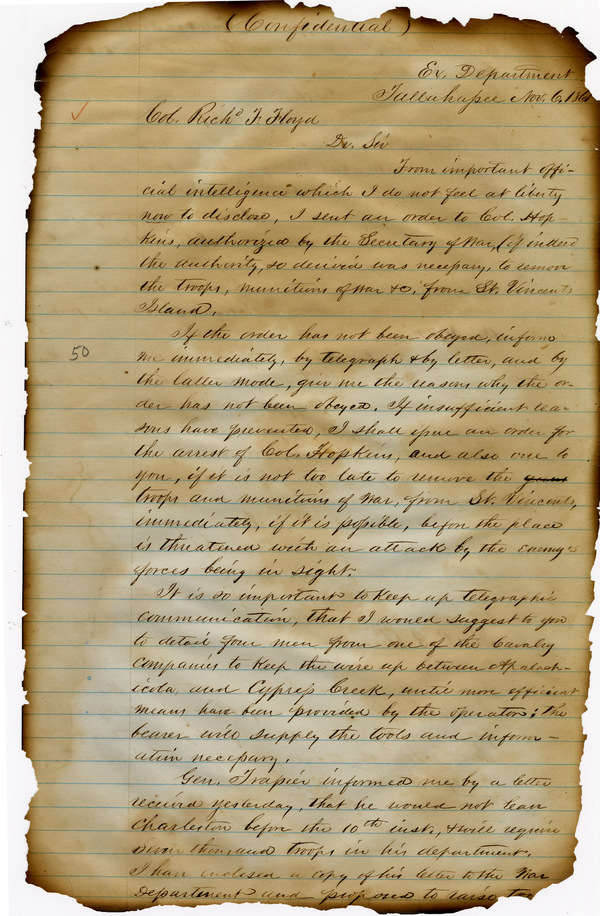 (Confidential)
Ex. Department
Tallahassee Nov. 6, 186
Col. Richd F. Floyd
Dr. Sir
From important offi-
cial intelligence which I do not feel at liberty
now to disclose, I sent an order to Col. Hop-
kins, authorized by the Secretary of War, (if indeed
the authority, so derived was necessary, to remove
the troops, munitions of war &c. from St. Vincents
Island.
If the order has not been obeyed, inform
50
me immediately, by telegraph & by letter, and by
the latter mode, give me the reasons why the or-
der has not been obeyed. If insufficient rea-
sons have prevented, I shall issue an order for
the arrest of Col. Hopkins, and also one to
you, if it is not too late to remove the
troops and munitions of war, from St. Vincents,
immediately, if it is possible, before the place
is threatened with an attack by the enemy's
forces being in sight.
It is so important to keep up telegraphic
communication, that I would suggest to you
to detail four men from one of the Cavalry
companies to keep the wire up between Apalach-
icola and Cypress Creek, until more efficient
means have been provided by the operator; the
bearer will supply the tools and inform-
ation necessary.
Gen. Trapier informed me by a letter
received yesterday, that he would not leave
Charleston before the 10th inst., & will require
seven thousand troops in his department.
I have enclosed a copy of his letter to the War
Department and proposed to raise